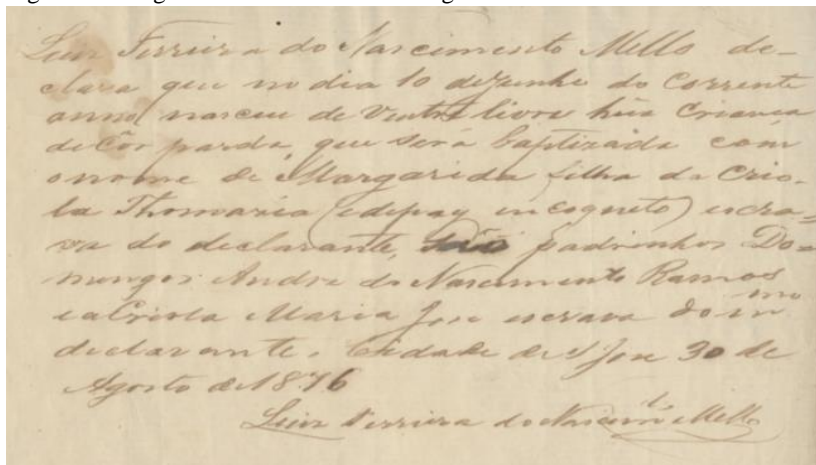 Luiz Ferreira do Nascimento Mello de-
clara que no dia 10 dejunho do Corrente
anno nasceu de Ventre livre húa Criança
de Côr parda, que será baptizada com
o nome de Margarida filha da Crio-
la Thomazia (edepay incogneto) escra-
va do declarante, padrinhos Do-
mungos Andre do Nascimento Ramos
e a Criola Maria Jose escrava do mmo
declarante. Cidade de S Jose 30 de
Agosto de 1876
Luiz Ferreira do Nascimto Mello